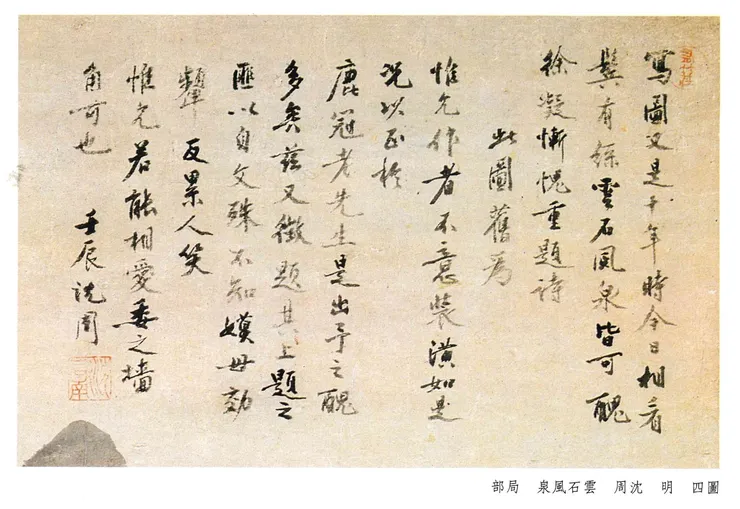 寫圖又是十年時今日相看
鬢有絲雲石風泉皆可醜
徐凝慚愧重題詩
此圖舊為
惟允作者不意裝潢如是
況以於
鹿冠老先生是出予之醜
多矣茲又徵題其上題之
匪以自文殊不知嫫母効
顰反累人笑
惟允若能相愛委之墻
角可也
壬辰沈周
圖四 明 沈周 雲石風泉 局部